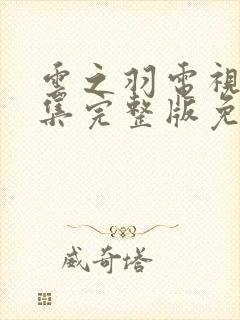 雲之羽電視
集完整版免
威奇塔